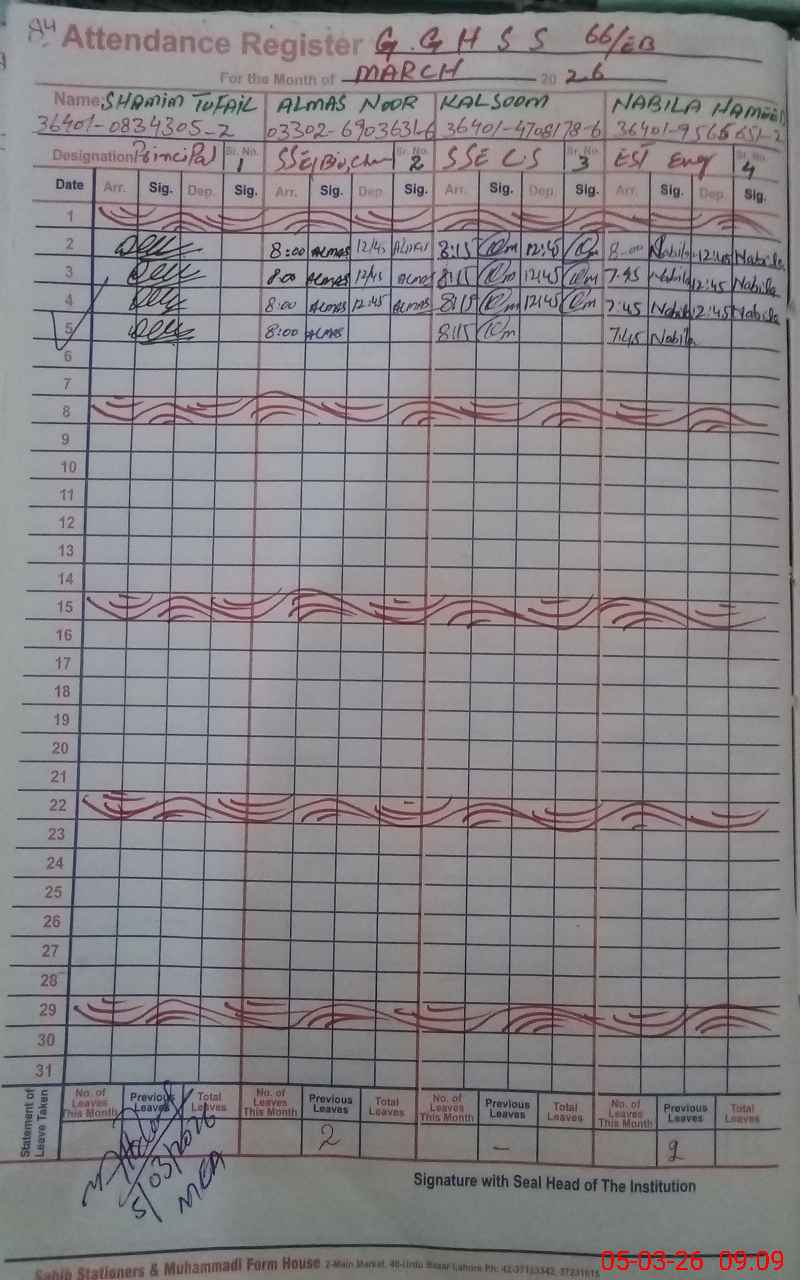 84
Attendance Register G.G H S S 66/EB
For the Month of MARCH 2026
Name SHAMIM TUFAIL ALMAS NOOR KALSOOM NABILA HAMEED
36401-0834305-2 03302-6903631-6 36401-4708178-6 36401-9566651-2
Designation Principal Sr. No. 1 SSE(Bio,Che) Sr. No. 2 SSE CS Sr. No. 3 EST Eng Sr. No. 4
Date Arr. Sig. Dep. Sig. Arr. Sig. Dep. Sig. Arr. Sig. Dep. Sig. Arr. Sig. Dep. Sig.
1
2 8:00 ALMAS 12/45 ALMAS 8:15 12:45 8:00 Nabila 12:45 Nabila
3 8:00 ALMAS 12/45 ALMAS 8:15 12:45 7:45 Nabila 12:45 Nabila
4 8:00 ALMAS 12:45 ALMAS 8:15 12:45 7:45 Nabila 12:45 Nabila
5 8:00 ALMAS 8:15 7:45 Nabila
6
7
8
9
10
11
12
13
14
15
16
17
18
19
20
21
22
23
24
25
26
27
28
29
30
31
Statement of Leave Taken
No. of Leaves This Month Previous Leaves Total Leaves No. of Leaves This Month Previous Leaves Total Leaves No. of Leaves This Month Previous Leaves Total Leaves No. of Leaves This Month Previous Leaves Total Leaves
2 - 2
5/03/2026
MEA
Signature with Seal Head of The Institution
Sahib Stationers & Muhammadi Form House 2-Main Market, 40-Urdu Bazar Lahore Ph: 42-37153342, 37231615
05-03-26 09:09